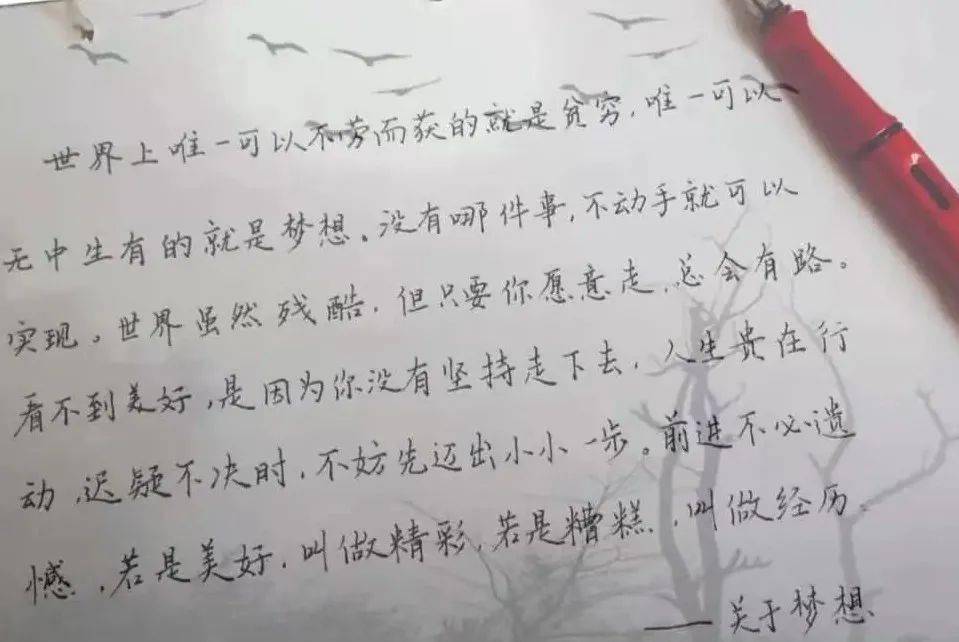 世界上唯一可以不劳而获的就是贫穷,唯一可以
无中生有的就是梦想。没有哪件事,不动手就可以
实现。世界虽然残酷,但只要你愿意走,总会有路。
看不到美好,是因为你没有坚持走下去,人生贵在行
动,迟疑不决时,不妨先迈出小小一步。前进不必遗
憾,若是美好,叫做精彩,若是糟糕,叫做经历。
——关于梦想、